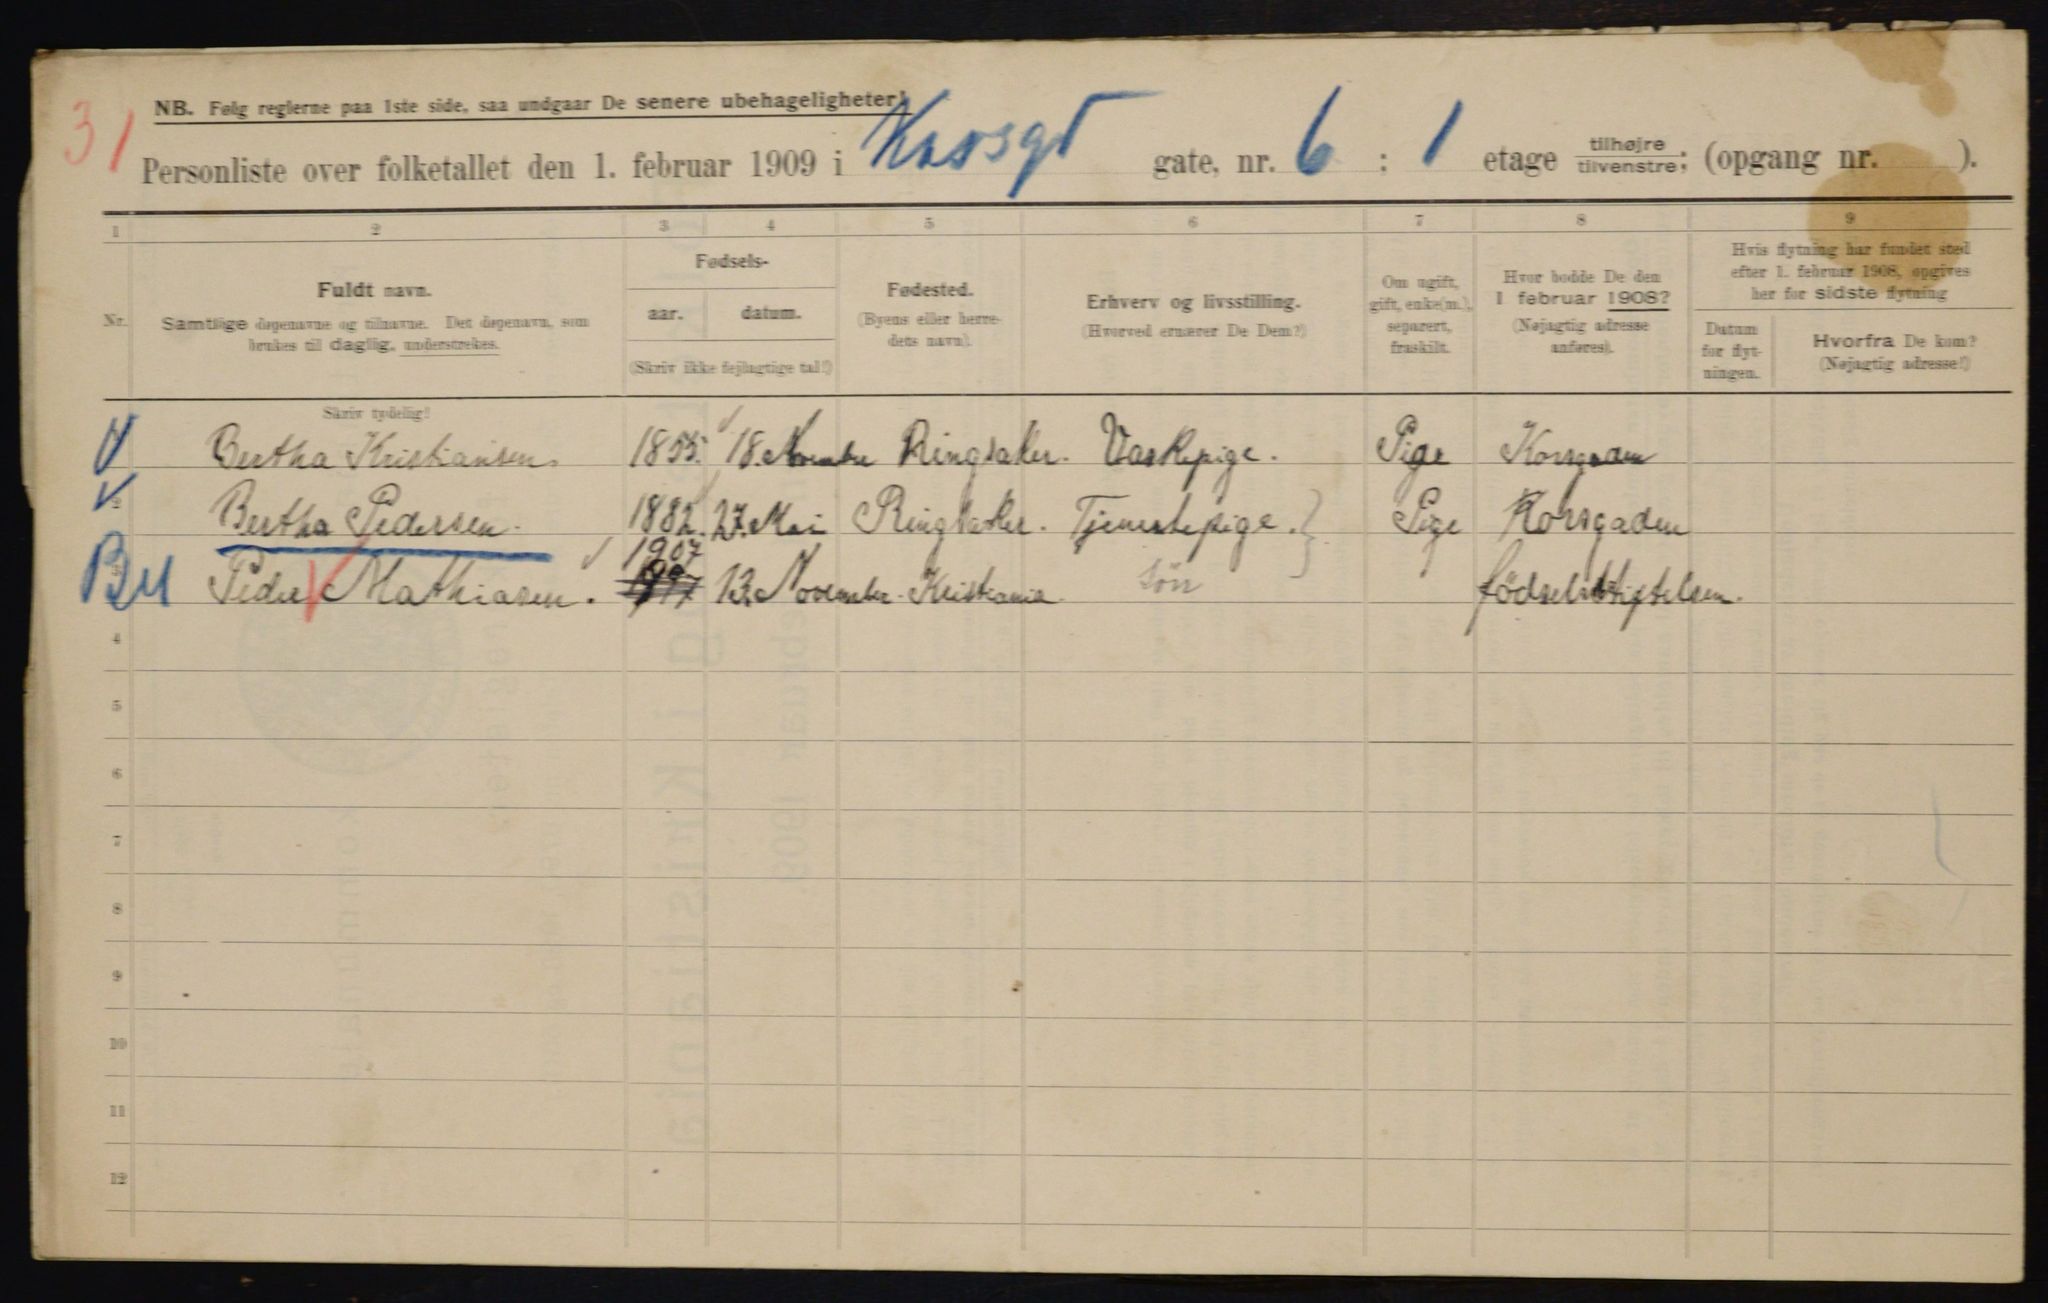 31
NB. Følg reglerne paa 1ste side, saa undgaar De senere ubehageligheter!
Personliste over folketallet den 1. februar 1909 i Korsgt gate, nr. 6 : 1 etage tilhøjre tilvenstre; (opgang nr. ).
1 2 3 4 5 6 7 8 9
Nr.
Fuldt navn.
Samtlige døpenavne og tilnavne. Det døpenavn, som
brukes til daglig, understrekes.
Fødsels-
aar. datum.
(Skriv ikke fejlagtige tal!)
Fødested.
(Byens eller herre-
dets navn).
Erhverv og livsstilling.
(Hvorved ernærer De Dem?)
Om ugift,
gift, enke(m.),
separert,
fraskilt.
Hvor bodde De den
1 februar 1908?
(Nøjagtig adresse
anføres).
Hvis flytning har fundet sted
efter 1. februar 1908, opgives
her for sidste flytning
Datum
for flyt-
ningen.
Hvorfra De kom?
(Nøjagtig adresse!)
Skriv tydelig!
Bertha Kristiansen. 1855. 18. November Ringsaker. Vaskepige. Pige Korsgaden
2 Bertha Pedersen. 1882. 27. Mai Ringsaker. Tjenestepige. } Pige Korsgaden
1907
Peder Mathiasen. 13. November. Kristiania. sön födselsstiftelsen.
4
5
6
7
8
9
10
11
12